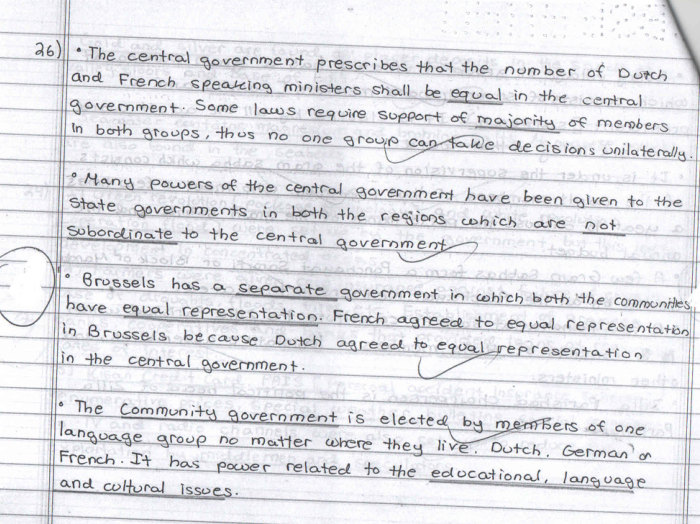 26) • The central government prescribes that the number of Dutch
and French speaking ministers shall be equal in the central
government. Some laws require support of majority of members
in both groups, thus no one group can take decisions unilaterally.
• Many powers of the central government have been given to the
state governments in both the regions which are not
subordinate to the central government
• Brussels has a separate government in which both the communities
have equal representation. French agreed to equal representation
in Brussels because Dutch agreed to equal representation
in the central government.
• The Community government is elected by members of one
language group no matter where they live. Dutch, German or
French. It has power related to the educational, language
and cultural issues.